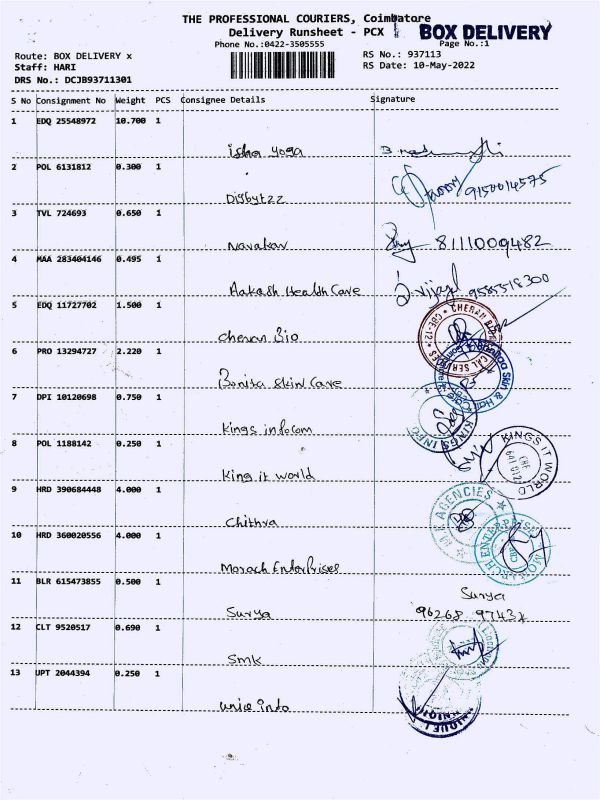 THE PROFESSIONAL COURIERS, Coimbatore
Delivery Runsheet - PCX BOX DELIVERY
Phone No.:0422-3505555 Page No.:1
Route: BOX DELIVERY x RS No.: 937113
Staff: HARI RS Date: 10-May-2022
DRS No.: DCJB93711301
S No Consignment No Weight PCS Consignee Details Signature
1 EDQ 25548972 10.700 1
isha yoga
2 POL 6131812 0.300 1
Digbytzz 9150014575
3 TVL 724693 0.650 1
Navakar 8111009482
4 MAA 283404146 0.495 1
Aakash Health Care
5 EDQ 11727702 1.500 1
cheran Bio
CHERAN
6 PRO 13294727 2.220 1
Bonisa Skin Care
7 DPI 10120698 0.750 1
Kings infocom
KINGS INFO
8 POL 1188142 0.250 1
King it world
KINGS IT WORLD
9 HRD 390684448 4.000 1
Chithra
AGENCIES
10 HRD 360020556 4.000 1
Enterprises
11 BLR 615473855 0.500 1
Surya
Surya
96268
12 CLT 9520517 0.690 1
Smk
13 UPT 2044394 0.250 1
unie indo